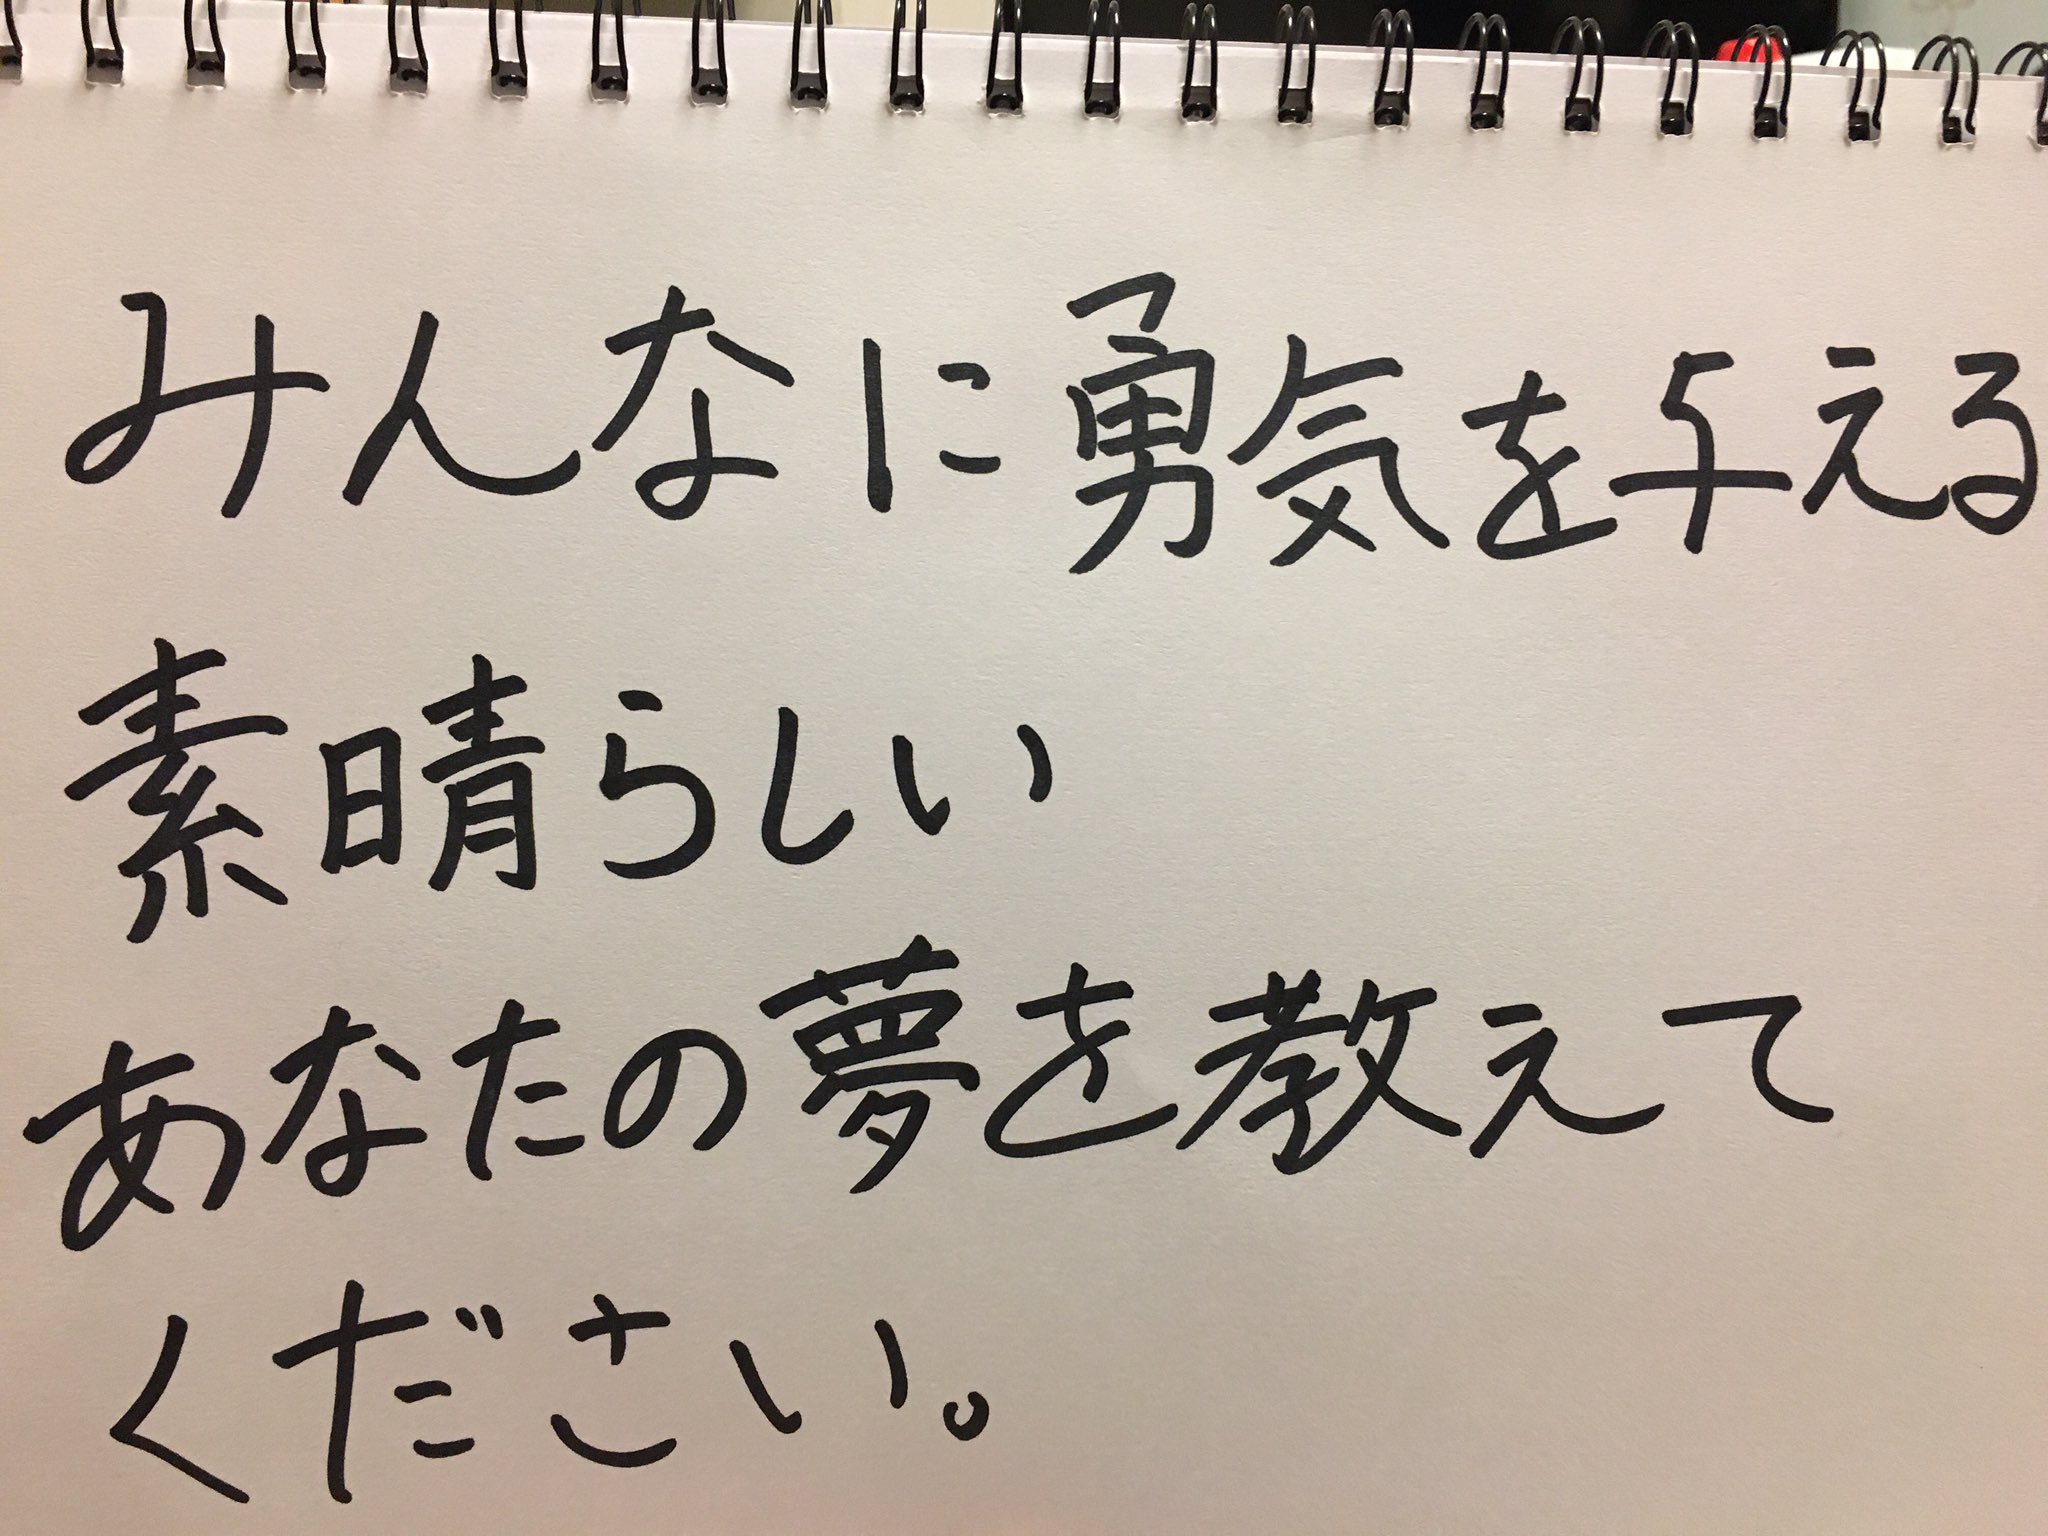 みんなに勇気を与える
素晴らしい
あなたの夢を教えて
ください。